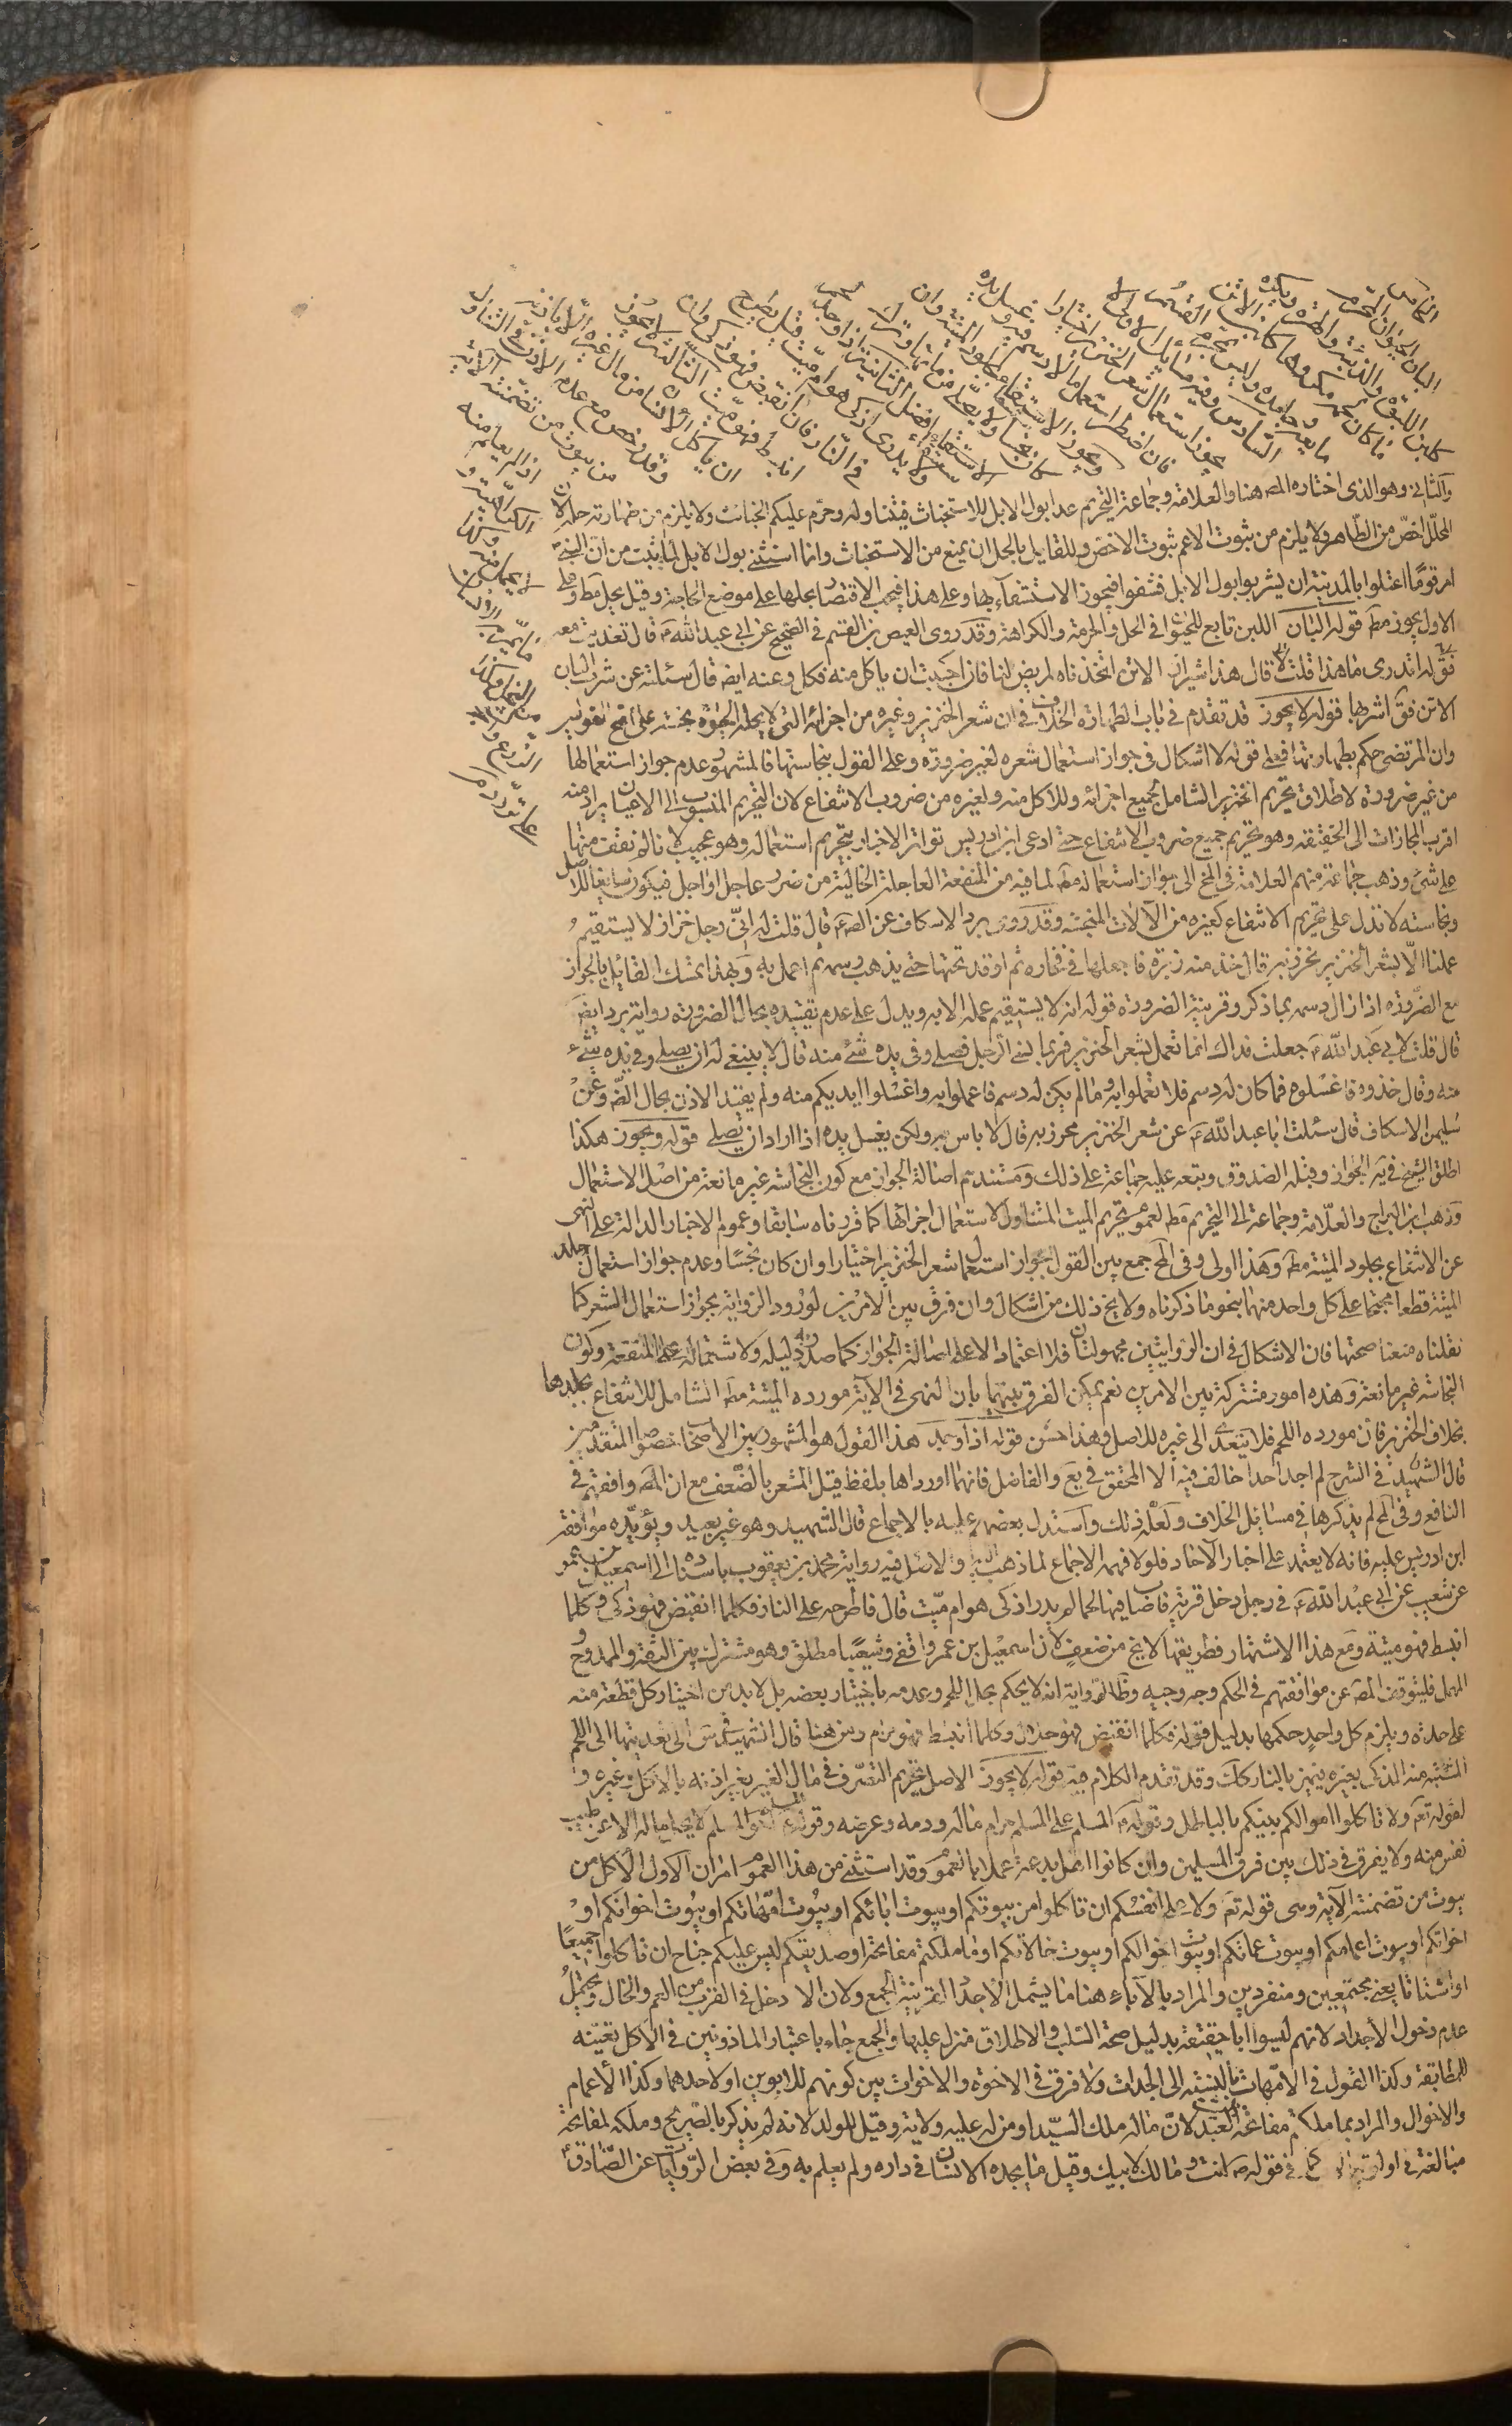 الخامس
البان الحيوان المحرم
كلبن اللبوة والذئبة والهرة ويكره
ما كان لحمه مكروها كلبن الاتن
مايعه وجامده وليس بمحرم القسم
السادس وفيه مسائل الاولى لا
يجوز استعمال شعر الخنزير اختيارا
فان اضطر استعمل ما لا دسم فيه وغسل يده
ويجوز الاستقاء بجلود الميتة وان
كان نجسا ولا يصلى من مائها وترك
الاستقاء افضل الثانية اذا وجد لحم
ولا يدرى اذكي هو ام ميت قيل يطرح
في النار فان انقبض فهو ذكي وان
انبسط فهو ميت الثالثة لا يجوز
ان ياكل الانسان من مال غيره الا باذنه
وقد رخص مع عدم الاذن في التناول
من بيوت من تضمنته الآية
اذا لم يعلم منه
الكراهية و
والثاني وهو الذي اختاره المصـ هنا والعلامة وجماعة التحريم عدا بول الابل للاستخباث فيتناوله وحرم عليكم الخبائث ولا يلزم من طهارته حله لان
المحلل اخص من الطاهر ولا يلزم من ثبوت الاعم ثبوت الاخص وللقايل بالحل ان يمنع من الاستخباث وانما استثنى بول الابل لما ثبت من ان النبي ص
امر قوما اعتلوا بالمدينة ان يشربوا بول الابل فشفوا فيجوز الاستشفاء بها وعلى هذا فيجب الاقتصار بحلها على موضع الحاجة وقيل يحل مط وعلى
الاول يجوز مط قوله البان اللبن تابع للحيوان في الحل والحرمة والكراهة وقد روى العيص بن القسم في الصحيح عن ابي عبد الله ع قال تغديت معه
فقال اتدري ما هذا قلت لا قال هذا شيراز الاتن اتخذناه لمريض لنا فان احببت ان ياكل منه فكل وعنه ايضـ قال سئلته عن شرب البان
الاتن فقال اشربها قوله لا يجوز قد تقدم في باب الطهارة الخلاف في ان شعر الخنزير وغيره من اجزائه التي لا يحله الحيوة نجسة على اصح القولين
وان المرتضى حكم بطهارتها فعلى قوله لا اشكال في جواز استعمال شعره لغير ضرورة وعلى القول بنجاستها فالمشهور عدم جواز استعمالها
من غير ضرورة لاطلاق تحريم الخنزير الشامل لجميع اجزائه وللاكل منه ولغيره من ضروب الانتفاع لان التحريم المنسوب الى الاعيان يراد منه
اقرب المجازات الى الحقيقة وهو تحريم جميع ضروب الانتفاع حتى ادعى ابن ادريس تواتر الاخبار بتحريم استعماله وهو عجيب لانا لم نقف منها
على شيء وذهب جماعة منهم العلامة في المخ الى جواز استعماله مط لما فيه من المنفعة العاجلة الخالية من ضرر عاجل او اجل فيكون سايغا للاصل
ونجاسته لا تدل على تحريم الانتفاع كغيره من الآلات المنجسة وقد روى برد الاسكاف عن الصـ ع قال قلت له اني رجل خراز لا يستقيم
عملنا الا بشعر الخنزير نخرز به قال خذ منه وبرة فاجعلها في فخارة ثم اوقد تحتها حتى يذهب دسمه ثم اعمل به وبهذا تمسك القايل بالجواز
مع الضرورة اذا زال دسمه بما ذكر وقرينة الضرورة قوله انه لا يستقيم عمله الا به ويدل على عدم تقييده بحال الضرورة رواية برد ايضـ
قال قلت لابي عبد الله ع جعلت فداك انا نعمل بشعر الخنزير فربما نسي الرجل فصلى وفي يده شيء منه قال لا ينبغي له ان يصلي وفي يده شيء
منه وقال خذوه فاغسلوه فما كان له دسم فلا تعملوا به وما لم يكن له دسم فاعملوا به واغسلوا ايديكم منه ولم يقيد الاذن بحال الضـ وعن
سليمن الاسكاف قال سئلت ابا عبد الله ع عن شعر الخنزير يخرز به قال لا باس به ولكن يغسل يده اذا اراد ان يصلي قوله ويجوز هكذا
اطلق الشيخ في يه الجواز وقبله الصدوق وتبعه عليه جماعة على ذلك ومستندهم اصالة الجواز مع كون النجاسة غير مانعة من اصل الاستعمال
وذهب ابن البراج والعلامة وجماعة الى التحريم مط لعموم تحريم الميتة المتناول لاستعمال اجزائها كما قررناه سابقا وعموم الاخبار الدالة على النهي
عن الانتفاع بجلود الميتة مط وهذا اولى وفي المخ جمع بين القول بجواز استعمال شعر الخنزير اختيارا وان كان نجسا وعدم جواز استعمال جلد
الميتة قطعا محتجا على كل واحد منهما بنحو ما ذكرناه ولا يخ ذلك من اشكال وان فرق بين الامرين لورود الرواية بجواز استعمال الشعر كما
نقلناه منعنا صحتها فان الاشكال في ان الروايتين مجهولتان فلا اعتماد الا على اصالة الجواز كما صدر دليله ولاشتماله على المنفعة وكون
النجاسة غير مانعة وهذه امور مشتركة بين الامرين نعم يمكن الفرق بينهما بان النهى في الآية مورده الميتة مط الشامل للانتفاع بجلدها
بخلاف الخنزير فان مورده اللحم فلا يتعدى الى غيره للاصل وهذا حسن قوله اذا وجد هذا القول هو المشهور بين الاصحاب خصوصا المتقدمين
قال الشهيد في الشرح لم اجد احدا خالف فيه الا المحقق في يع والفاضل فانهما اورداها بلفظ قيل المشعر بالضعف مع ان المصـ وافقهم في
النافع وفي المخ لم يذكرها في مسائل الخلاف ولعله لذلك واستدل بعضهم عليه بالاجماع قال الشهيد وهو غير بعيد ويؤيده موافقة
ابن ادريس عليه فانه لا يعتمد على اخبار الآحاد فلولا فهمه الاجماع لما ذهب اليه والاصل فيه رواية محمد بن يعقوب باسناده الى اسمعيل بن عمر
عن شعيب عن ابي عبد الله ع في رجل دخل قرية فاصاب فيها لحما لم يدر اذكي هو ام ميت قال فاطرحه على النار فكلما انقبض فهو ذكي وكلما
انبسط فهو ميتة ومع هذا الاشتهار فطريقها لا يخ من ضعف لان اسمعيل بن عمر واقفي وشعيبا مطلق وهو مشترك بين الثقة والممدوح
المهمل فليتوقف المصـ عن موافقتهم في الحكم وجه وجيه وظاهر الرواية انه لا يحكم بحل اللحم وعدمه باختبار بعضه بل لا بد من اختبار كل قطعة منه
على حدة ويلزم كل واحد حكمها بدليل قوله فكلما انقبض فهو حلال وكلما انبسط فهو حرام ومن هنا قال الشهيد في س الى تعديتها الى اللحم
المشتبه منه الذكي بغيره يتميز بالنار كك وقد تقدم الكلام فيه قوله لا يجوز الاصل تحريم التصرف في مال الغير بغير اذنه بالاكل وغيره
لقوله تع ولا تاكلوا اموالكم بينكم بالباطل وقوله ص المسلم على المسلم حرام ماله ودمه وعرضه وقوله ص المسلم اخو المسلم لا يحل ماله الا عن طيب
نفس منه ولا يفرق في ذلك بين فرق المسلمين وان كانوا اهل بدعة عملا بالعموم وقد استثنى من هذا العموم امران الاول الاكل من
بيوت من تضمنته الآية وهي قوله تع ولا على انفسكم ان تاكلوا من بيوتكم او بيوت ابائكم او بيوت امهاتكم او بيوت اخوانكم او
اخواتكم او بيوت اعمامكم او بيوت عماتكم او بيوت اخوالكم او بيوت خالاتكم او ما ملكتم مفاتحه او صديقكم ليس عليكم جناح ان تاكلوا جميعا
او اشتاتا يعنى مجتمعين ومنفردين والمراد بالآباء هنا ما يشمل الاجداد لقرينة الجمع ولان الاب ادخل في القرب من العم والخال ويحتمل
عدم دخول الاجداد لانهم ليسوا ابا حقيقة بدليل صحة السلب والاطلاق منزل عليها والجمع جاء باعتبار الماذونين في الاكل تغيته
للمطابقة وكذا القول في الامهات بالنسبة الى الجدات ولا فرق في الاخوة والاخوات بين كونهم للابوين او لاحدهما وكذا الاعمام
والاخوال والمراد بما ملكتم مفاتحه العبد لان ماله ملك السيد او من له عليه ولاية وقيل الولد لانه لم يذكر بالصريح وملكه لمفاتحه
مبالغة في كما في قوله ص انت ومالك لابيك وقيل ما يجده الانسان في داره ولم يعلم به وفي بعض الروايات عن الصادق ع